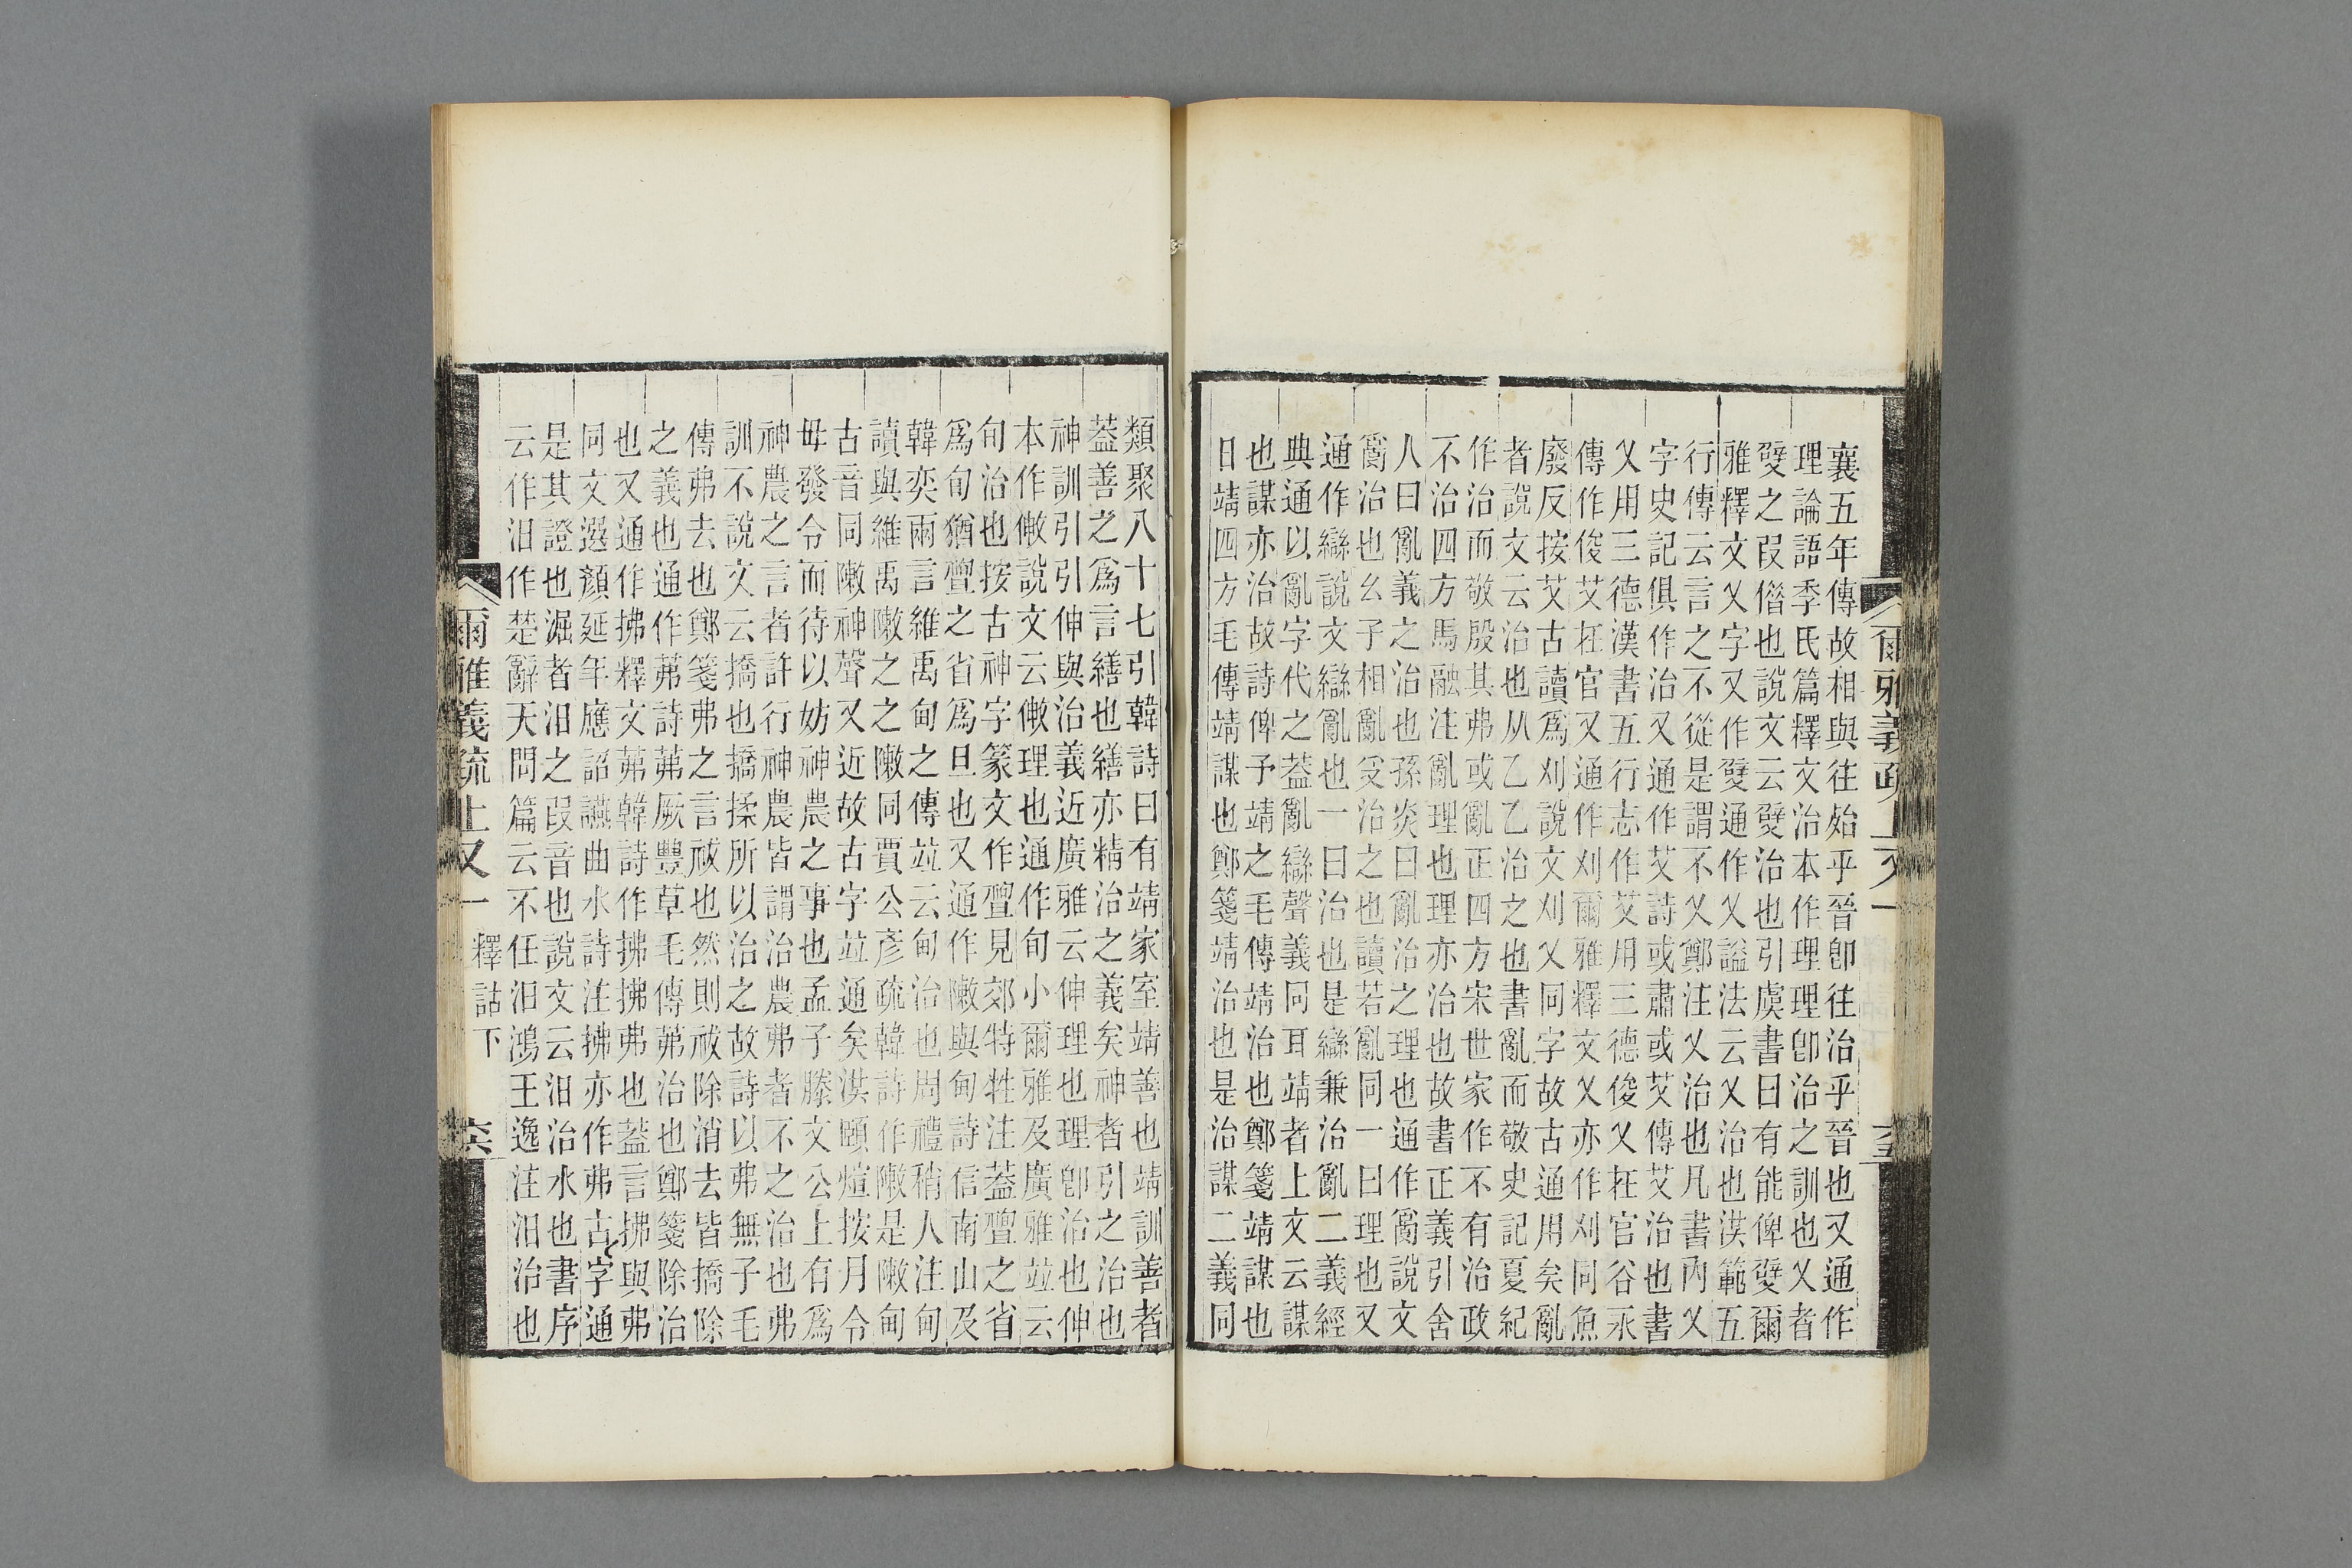 爾雅義疏 上又一
六五
襄五年傳故相與往殆乎晉卽往治乎晉也又通作
理論語季氏篇釋文治本作理理卽治之訓也乂者
𨐨之叚借也說文云𨐨治也引虞書曰有能俾𨐨爾
雅釋文乂字又作𨐨通作乂謚法云乂治也洪範五
行傳云言之不從是謂不乂鄭注乂治也凡書內乂
字史記俱作治又通作艾詩或肅或艾傳艾治也書
乂用三德漢書五行志作艾用三德俊乂在官谷永
傳作俊艾在官又通作刈爾雅釋文乂亦作刈同魚
廢反按艾古讀爲刈說文刈乂同字故古通用矣亂
者說文云治也从乙乙治之也書亂而敬史記夏紀
作治而敬殷其弗或亂正四方宋世家作不有治政
不治四方馬融注亂理也理亦治也故書正義引舍
人曰亂義之治也孫炎曰亂治之理也通作𤔔說文
𤔔治也幺子相亂𠬪治之也讀若亂同一曰理也又
通作䜌說文䜌亂也一曰治也是䜌兼治亂二義經
典通以亂字代之葢亂䜌聲義同耳靖者上文云謀
也謀亦治故詩俾予靖之毛傳靖治也鄭箋靖謀也
日靖四方毛傳靖謀也鄭箋靖治也是治謀二義同
類聚八十七引韓詩曰有靖家室靖善也靖訓善者
葢善之爲言繕也繕亦精治之義矣神者引之治也
神訓引引伸與治義近廣雅云伸理也理卽治也伸
本作敒說文云敒理也通作旬小爾雅及廣雅竝云
旬治也按古神字篆文作亶見郊特牲注葢亶之省
爲旬猶亶之省爲旦也又通作敶與甸詩信南山及
韓奕兩言維禹甸之傳竝云甸治也周禮稍人注甸
讀與維禹敶之之敶同賈公彥疏韓詩作敶是敶甸
古音同敶神聲又近故古字竝通矣洪頤煊按月令
毋發令而待以妨神農之事也孟子滕文公上有爲
神農之言者許行神農皆謂治農弗者不之治也弗
訓不說文云撟也撟揉所以治之故詩以弗無子毛
傳弗去也鄭箋弗之言祓也然則祓除消去皆撟除
之義也通作茀詩茀厥豐草毛傳茀治也鄭箋除治
也又通作拂釋文茀韓詩作拂拂弗也葢言拂與弗
同文選顏延年應詔讌曲水詩注拂亦作弗古字通
是其證也淈者汩之叚音也說文云汩治水也書序
云作汩作楚辭天問篇云不任汩鴻王逸注汩治也
爾雅義疏 上又一 釋詁下
六六